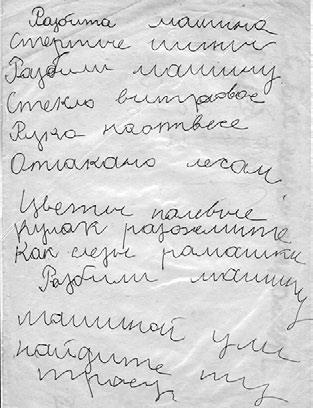 Разбита машина
Стертые шины
Разбили машину
Стекло витровое
Рука наотвесе
Отиакано лесам
Цветы полевые
кулак разожмите
Как слезы рамашки
Разбили машину
машиной ули
найдите ту
трассу